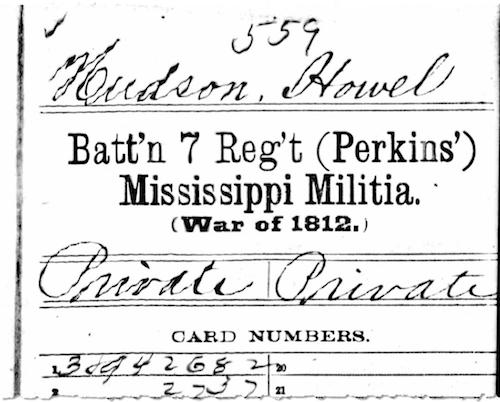 559
Hudson, Howel
Batt'n 7 Reg't (Perkins')
Mississippi Militia.
(War of 1812.)
Private | Private
CARD NUMBERS.
1 38942682 20
2 2737 21